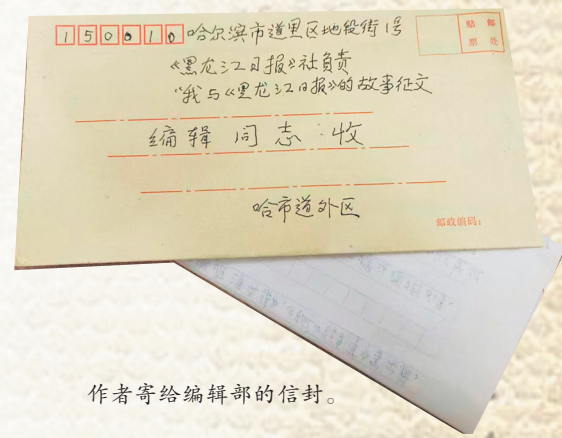 150010 哈尔滨市道里区地段街1号
贴邮
票处
《黑龙江日报》社负责
"我与《黑龙江日报》的故事征文
编辑同志 收
哈市道外区
邮政编码:
作者寄给编辑部的信封。